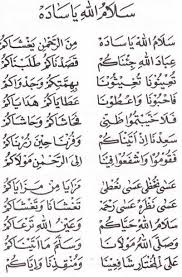 سَلَامُ اللهِ يَا سَادَةْ
سَلَامُ اللهِ يَا سَادَةْ مِنَ الرَّحْمٰنِ يَغْشَاكُمْ
عِبَادَ اللهِ جِئْنَاكُمْ قَصَدْنَاكُمْ طَلَبْنَاكُمْ
تُعِينُونَا تُغِيثُونَا بِهِمَّتِكُمْ وَجَدْوَاكُمْ
فَاحْبُونَا وَاعْطُونَا عَطَايَاكُمْ هَدَايَاكُمْ
فَلَا خَيَّبْتُمُوا ظَنِّي فَحَاشَاكُمْ وَحَاشَاكُمْ
سَعِدْنَا إِذْ أَتَيْنَاكُمْ وَفُزْنَا حِينَ زُرْنَاكُمْ
فَقُومُوا وَاشْفَعُوا فِينَا إِلَى الرَّحْمٰنِ مَوْلَاكُمْ
عَسَى نُحْظَى عَسَى نُعْطَى مَزَايَا مِنْ مَزَايَاكُمْ
عَسَى نَظْرَةْ عَسَى رَحْمَةْ تَغْشَانَا وَتَغْشَاكُمْ
سَلَامُ اللهِ حَيَّاكُمْ وَعَيْنُ اللهِ تَرْعَاكُمْ
وَصَلَّى اللهُ مَوْلَانَا وَسَلَّمَ مَا أَتَيْنَاكُمْ
عَلَى الْمُخْتَارِ شَافِعِنَا وَمُنْقِذِنَا وَإِيَّاكُمْ